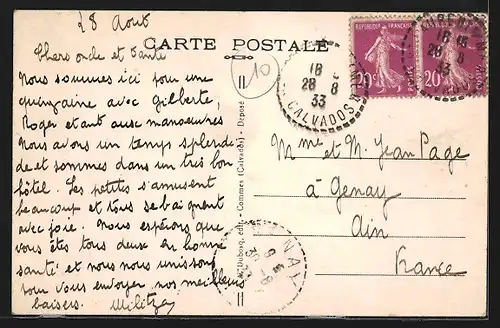 28 Aout
CARTE POSTALE
Chers oncle et tante
Nous sommes ici pour une
quinzaine avec Gilberte,
Roger etant aux manoeuvres
Nous avons un temps splendi-
de et sommes dans un très bon
hôtel. Les petites s'amusent
beaucoup et tous se baignent
avec joie. Nous espérons que
vous êtes tous deux en bonne
santé et nous nous unissons
pour vous envoyer nos meilleurs
baisers. Militza
10
Dubosq, édit. - Commes (Calvados) - Déposé
REPUBLIQUE FRANCAISE
20c POSTES
REPUBLIQUE FRANCAISE
20c POSTES
18
28 - 8
33
CALVADOS
18
28 8
33
Mme et M. Jean Page
à Genay
Ain
France